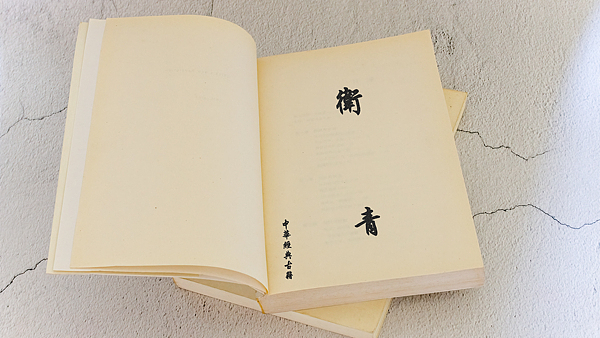 衛青
中華經典古籍